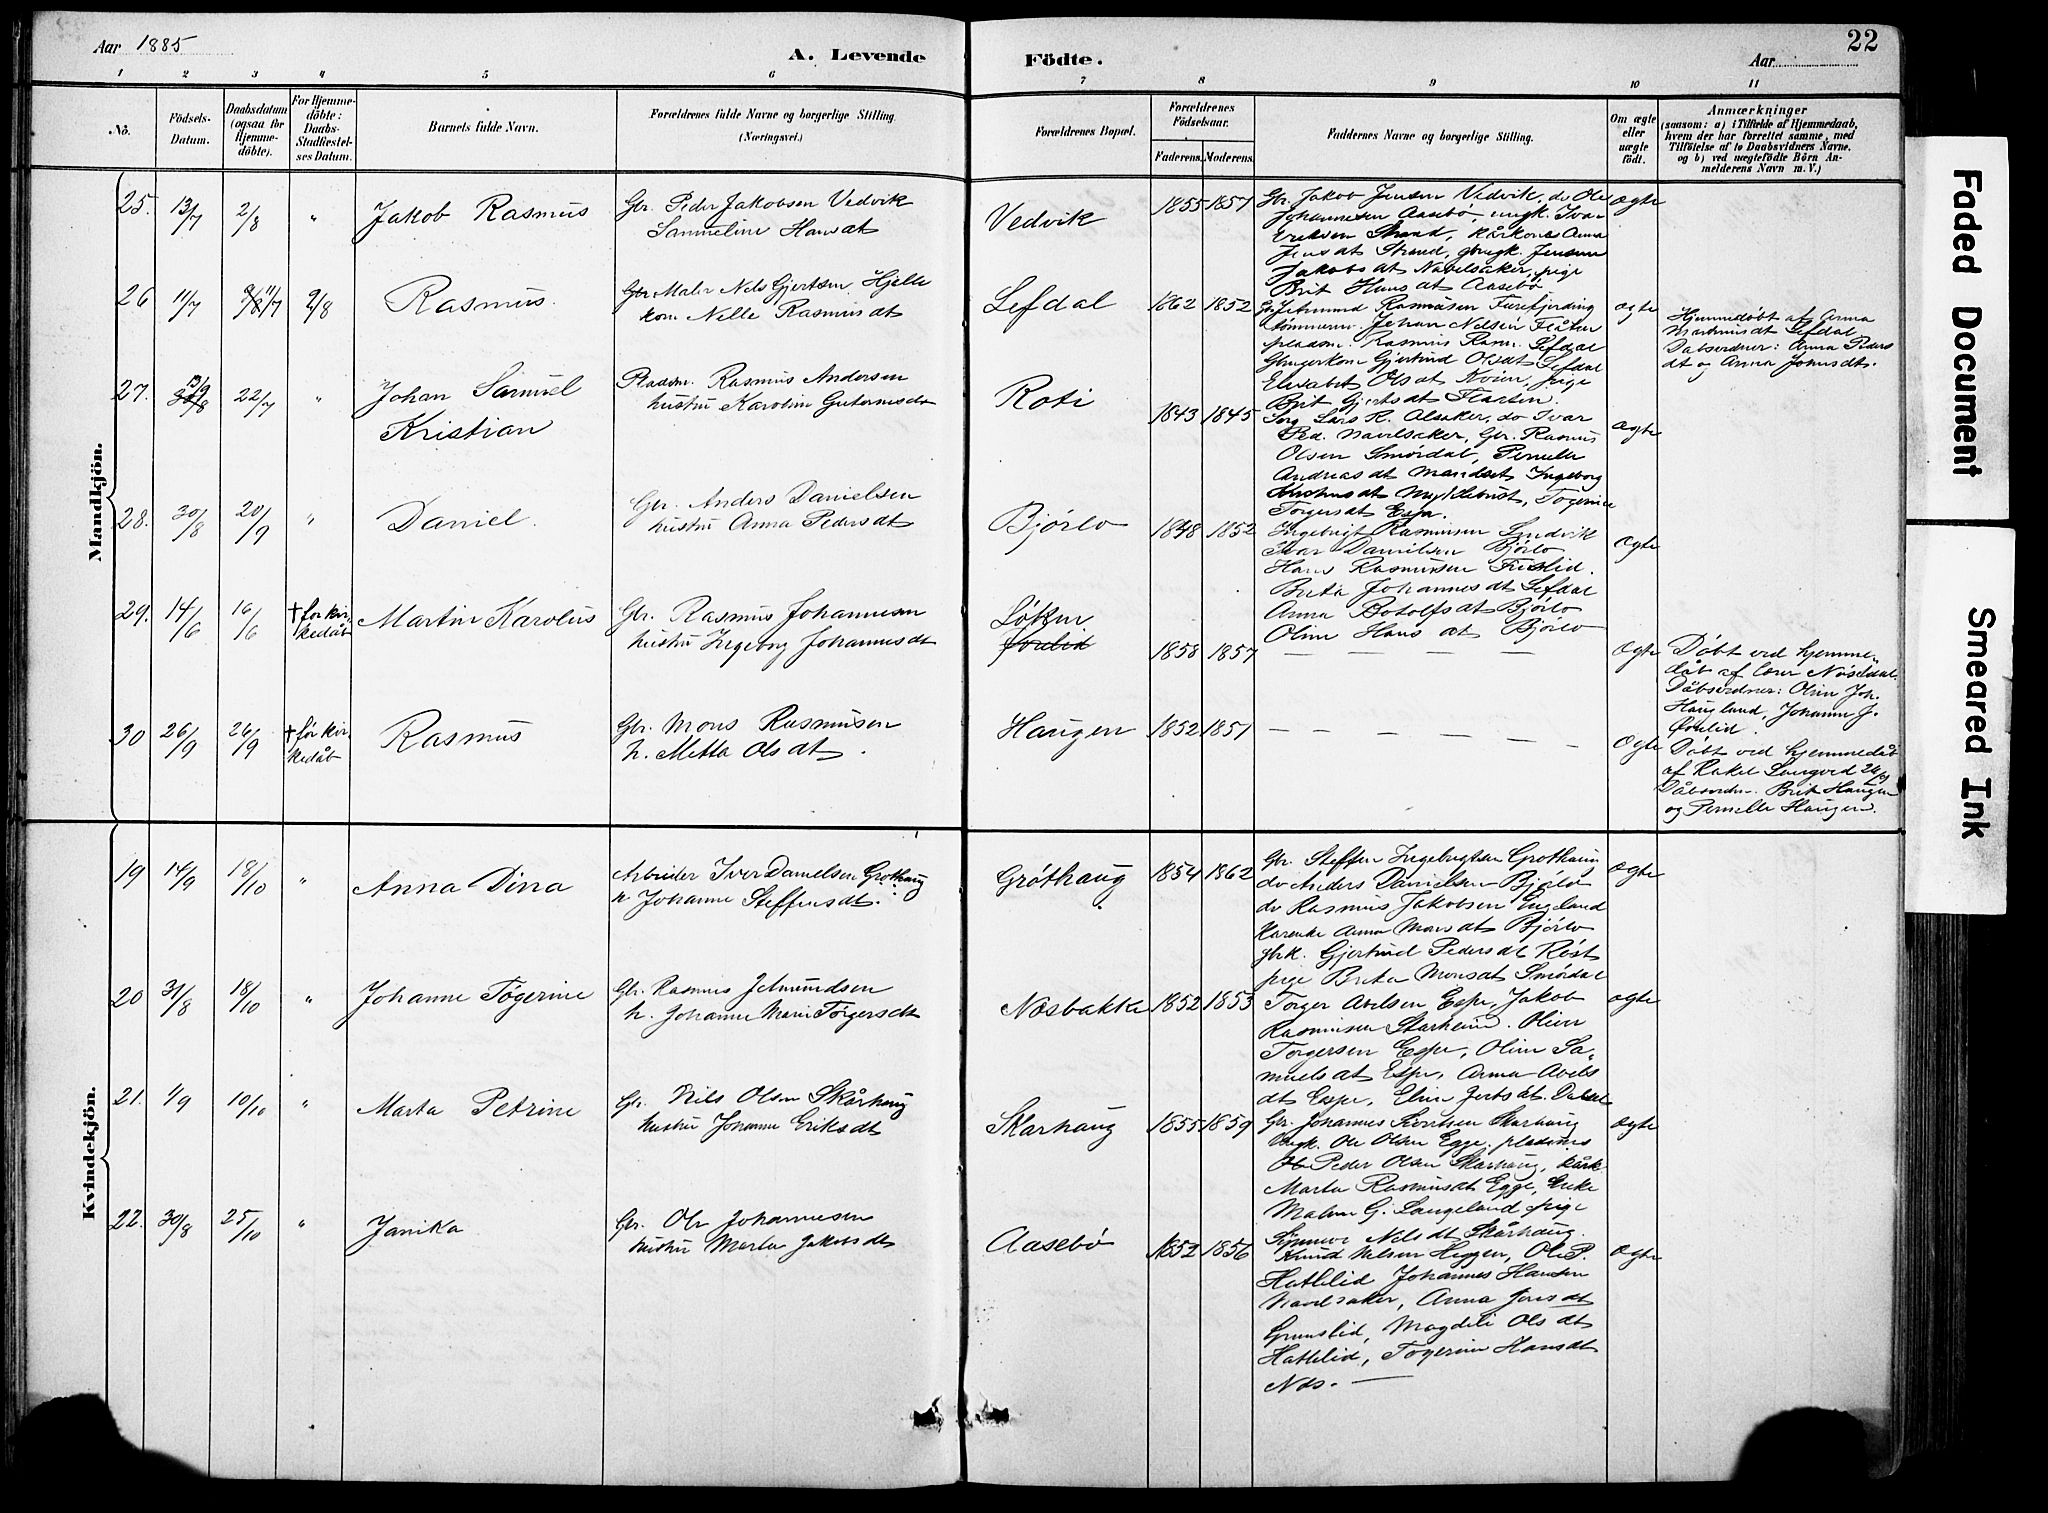 Aar 1885
A. Levende
Födte.
Aar
22
1 2 3 4 5 6 7 8 9 10 11
No.
Födsels-
Datum.
Daabsdatum
(ogsaa for
Hjemme-
döbte).
For Hjemme-
döbte:
Daabs-
Stadfæstel-
ses Datum.
Barnets fulde Navn.
Forældrenes fulde Navne og borgerlige Stilling.
(Næringsvei.)
Forældrenes Bopæl.
Forældrenes
Födselsaar.
Faderens. Moderens.
Faddernes Navne og borgerlige Stilling.
Om ægte
eller
uægte
født.
Anmærkninger
(saasom: a) i Tilfælde af Hjemmedaab,
hvem der har forrettet samme, med
Tilföielse af to Daabsvidners Navne,
og b) ved uægtefödte Börn An-
melderens Navn m. V.)
Mandkjön.
25. 13/7 2/8 " Jakob Rasmus
Gbr. Peder Jakobsen Vedvik
Sammeline Hansdt
Vedvik 1855 1857
Gbr. Jakob Jensen Vedvik, do Ole
Johannesen Aasebö, ungk. Ivar
Strand, kårkone Anna
Jensdt Strand, gbrugk.
Jakobsdt Navelsaker, pige
Brit Hansdt Aasebö
ægte
26 11/7 11/7 9/8 Rasmus.
Maler Nels Gjertsen Hjelle
kone Nille Rasmusdt
Lefdal 1862 1852
Jetmund Rasmusen Furefjording
Johan Nelsen
pladsm. Rasmus Rasm. Lefdal
Gjertrud Olsdt Lefdal
Elisabet Olsdt Kvien, pige
Brit Gjertsdt
ægte
Hjemmedöbt af Anna
Martinusdt Lefdal
Anna Peders
dt og Anna Jonsdt.
27. 13/9 22/7 " Johan Samuel
Kristian
Pladsm. Rasmus Andersen
hustru Karolin
Roti 1843 1845
Lars R. Alsaker, do Ivar
Ped. Navelsaker, Gbr. Rasmus
Olsen Smördal, Pernille
Andreasdt Ingeborg
Myklebust, Togerine
Torgersdt Espe.
ægte
28. 30/8 20/9 " Daniel.
Gbr. Anders Danielsen
hustru Anna Pedersdt
Bjórlo 1848 1852
Ingebrigt Rasmusen
Ivar Danielsen Bjórlo
Hans Rasmusen
Brita Johannesdt Lefdal
Anna Botolfsdt Bjórlo
Oline Hansdt Bjórlo
ægte
29. 14/6 16/6 † för kir-
kedåb Martin Karolus
Gbr. Rasmus Johannesen
hustru Ingeborg Johannesdt
1858 1857 — — — — — ægte
Döbt ved hjemme-
dåb af
Oline Joh.
Haugland, Johanne J.
30 26/9 26/9 † för kir-
kedåb Rasmus
Gbr. Mons Rasmusen
h. Metta Olsdt.
Haugen 1852 1851 — — — — — — ægte
Döbt ved hjemmedåb
af Rakel
Brit Haugen
og Pernille Haugen.
Kvindekjön.
19 14/9 18/10 " Anna Dina
Arbeider Iver Danielsen Gróthaug
h. Johanne Steffensdt.
Gróthaug 1854 1862
Gbr. Steffen Ingebrigtsen Grothaug
do Anders Danielsen Bjórlo
do Rasmus Jakobsen Engeland
Anna Monsdt Bjórlo
gbrk. Gjertrud Pedersdt Röst
pige Brita Monsdt Smördal
ægte
20 31/8 18/10 " Johanne Tögerine
Gbr. Rasmus Jetmundsen
h. Johanne Marie Törgersdt
Nosbakke 1852 1853
Torger Abelsen Espe, Jakob
Rasmusen Skarheim. Oliver
Torgersen Espe, Oline Sa-
muelsdt Espe, Anna Abels
dt Espe, Eline
ægte
21. 1/9 10/10 " Marta Petrine
Gbr. Nils Olsen Skårhaug
hustru Johanne Eriksdt
Skarhaug 1855 1859
Gbr. Johannes Skarhaug
Ungk. Ole Olsen Egge,
Peder Olsen Skarhaug, kårk.
Marta Rasmusdt Egge, Enke
G. Langeland, pige
Nelsdt Skårhaug.
ægte
22. 30/8 25/10 " Janika
Gbr. Ole Johannesen
hustru Marta Jakobsdt
Aasebö 1852 1856
Knud Nelsen Heggen, Ole P.
Hattelid Johannes Hansen
Navelsaker, Anna Jensdt
Magdeli Olsdt
Hattelid, Togerine Hansdt
Nos. —
ægte
Faded Document
Smeared Ink